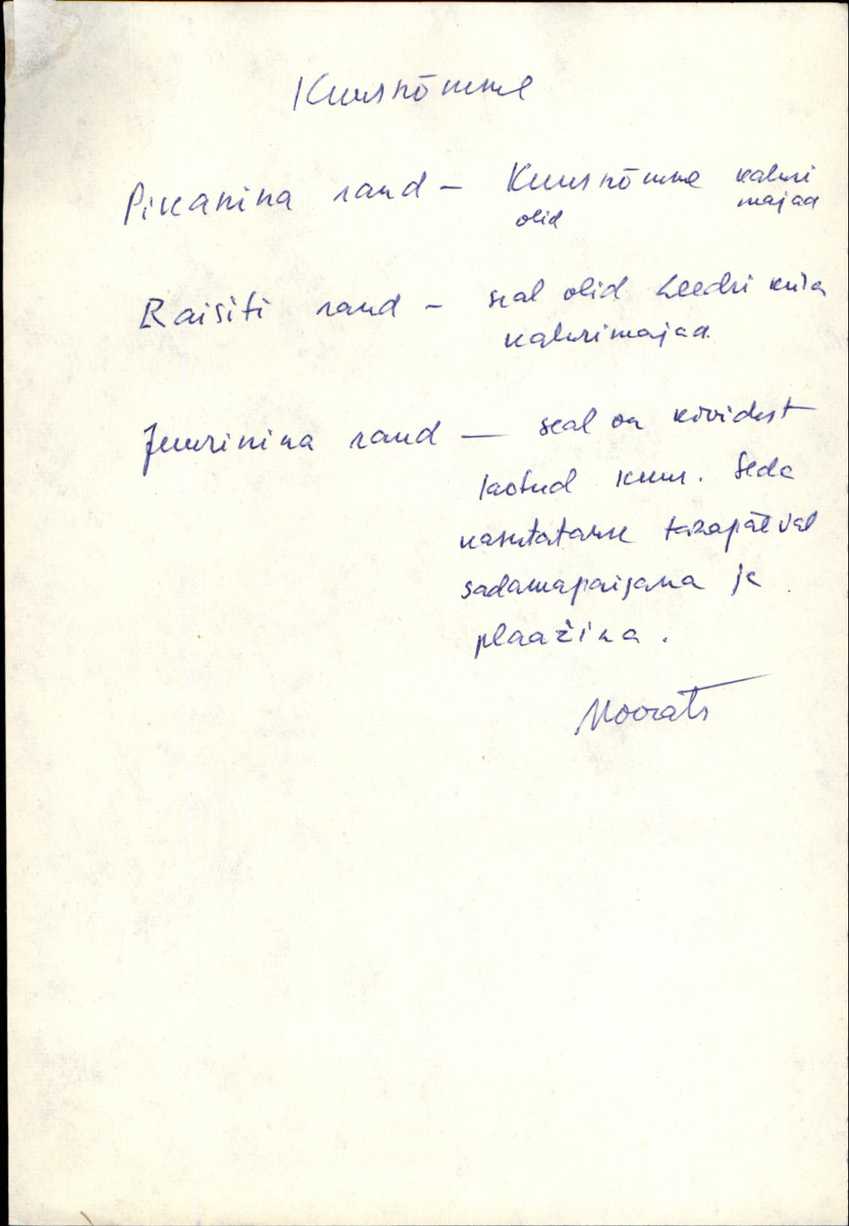 Kuusnõmme
Pikanina rand – Kuusnõmme kaluri
olid majad
Raisiti rand – seal olid Leedri küla
kalurimajad.
Juurinina rand — seal on kividest
laotud kuur. Seda
kasutatakse tänapäeval
sadamapaigana ja
plaažina.